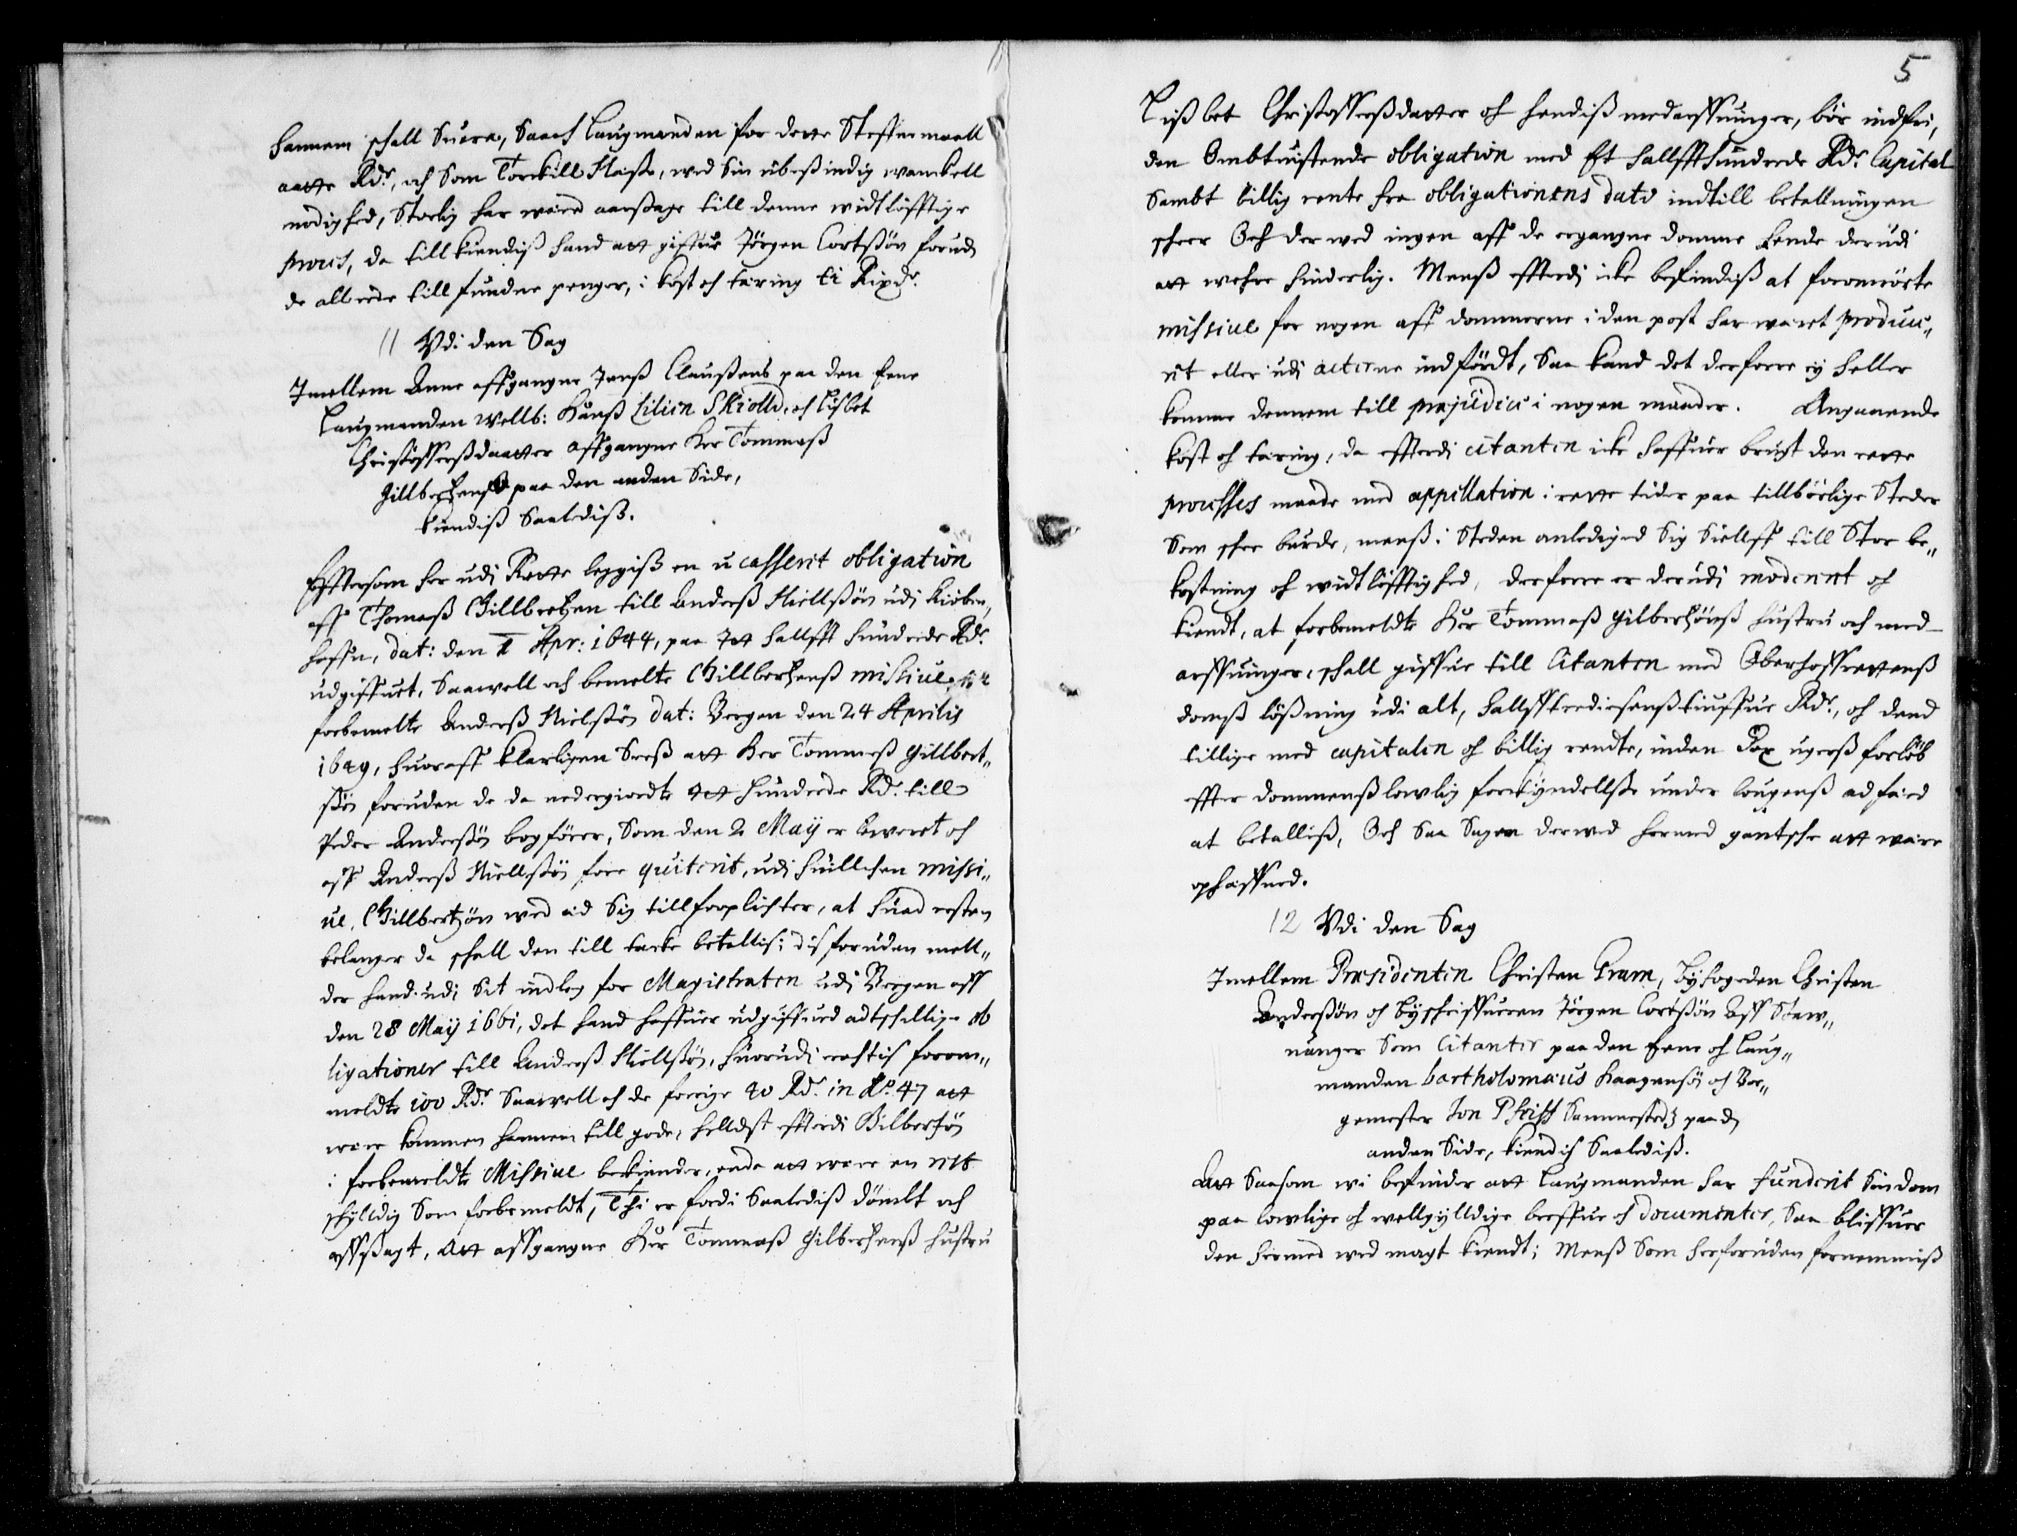 hannem schall Suare, Saa och Laugmanden for dette Steffnemaall
aatte Rdr, och Som Torckill Nasse, med Sin ubesindig wanckell
modighed, Storlig har wærd aarssage till denne widtløfftige
proces, da tillkiendiss hand att giffue Jørgen Cortssøn foruden
de allerede tillfundne penger, i kost och tæring ti Rixdr.
11 Vdi den Sag
Imellem Anne affgangne Jenss Claussens paa den Eene
Laugmanden Wellb: Hanss Lilien Skiold, och Lisbet
Christofferssdaatter affgangne Her Tommass
Gillbertzens paa den anden Side,
kiendiss Saalediss.
Efftersom her udi Rette leggiss en u casserit obligation
aff Thomass Gillbertzen till Anderss Niellssøn udi Kiøben,
haffn, dat: den 1 Apr: 1644, paa Jtt hallfft hundrede Rdr.
udgiffuet, Saawell och bemelte Gillbertzenss missiue till
forbemelte Anderss Nielssøn dat: Bergen den 24 Aprilis
1649, huoraff klarligen Seess att Her Tommess Gillbert„
ssøn foruden de da nedergiordte Jtt hunderde Rdr. till
Peder Anderssøn bogfører, Som den 2 Maij er leweret och
aff Anderss Niellssøn fore quiterit, udi huillchen missi„
ue, Gillbertzøn wed æd Sig tillforplichter, at huad resten
belanger da schall den till tacke betallis; disforuden mell„
der hand udi Sit indleg for Magistraten udi Bergen aff
den 28 Maij 1661, det hand haffuer udgiffued adtschillige ob
ligationer till Anderss Niellssøn, huorudi rechtis forom„
meldte 100 Rdr. Saawell och de forrige 40 Rdr. in Ao. 47 att
were kommen hannem till gode, helldst efftterdi Gilbertzøn
i forbemeldte Missiue bekiender, ende att were en rest
schylldig Som forbemeldt, Thi er fordi Saalediss dømbt och
affsagt, Att affgangne Her Tommass Gilbertzenss hustru
5
Lissbet Christofferssdatter och hendiss medarffuinger, bør indfri,
den Ombtuistende obligation med Et hallfft hundrede Rdr. Capital
Sambt billig rente fra obligationens dato indtill betallningen
scheer Och der wed ingen aff de ergangne domme hende derudi
att wehre hinderlig. Menss effterdi icke befindiss at foromrørte
missiue for nogen aff dommerne i den post har wæret produce„
rit eller udi acterne indførdt, Saa kand det derforre ey heller
komme dennem till præjudice i nogen maader. Angaaende
kost och tæring, da effterdi Citanten icke haffuer brugt den rette
processes maade med appellation i rette tider paa tillbørlige Steder
Som schee burde, menss i Steden anlediged Sig Siellff till Stor be„
kostning och widtløfftighed, derforre er derudi moderert och
kiendt, at forbemeldte Her Tommass Gilbertzønss hustru och med
arffuinger, schall giffue till Citanten med Oberhoffrettenss
domss løssning udi alt, hallfftrediesenstiuffue Rdr., och dend
tillige med capitalen och billig rendte, inden Sex ugerss forløb
effter dommenss lowlig forkyndellsse under lougenss adfærd
at betalliss, Och Saa Sagen derwed hermed gantsche att være
ophæffued.
12 Vdi den Sag
Imellem Præsidenten Christen Pram, Byfogeden Christen
Anderssøn och Byschriffueren Jørgen Cortssøn Aff Staw„
nanger Som Citanter paa den Eene och Laug„
manden bartholomæus Haagenssøn och Bor„
gemester Jon Phriss Sammersted paa d
anden Side, kiendis Saalediss.
Att Saasom wi befinder att Laugmanden har funderit Sin dom
paa lowlige och wellgylldige breffue och documenter, Saa bliffuer
den hermed wed magt kiendt; Menss Som herforuden fornemmiss